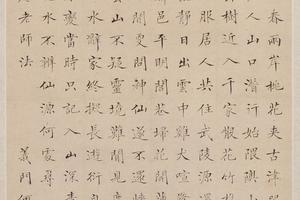 春兩岸桃花夾古津
人山口潛行始隈
樹近入千家散花竹樵
服居人共住武陵源還
靜日出雲中雞犬喧
邑平明閭巷掃花開
間更問神仙遂不還峽
山不疑靈境難聞見塵
水辭家終擬長遊衍自
變當時只記入山深青
水不辨仙源何處尋
老師法
義門何